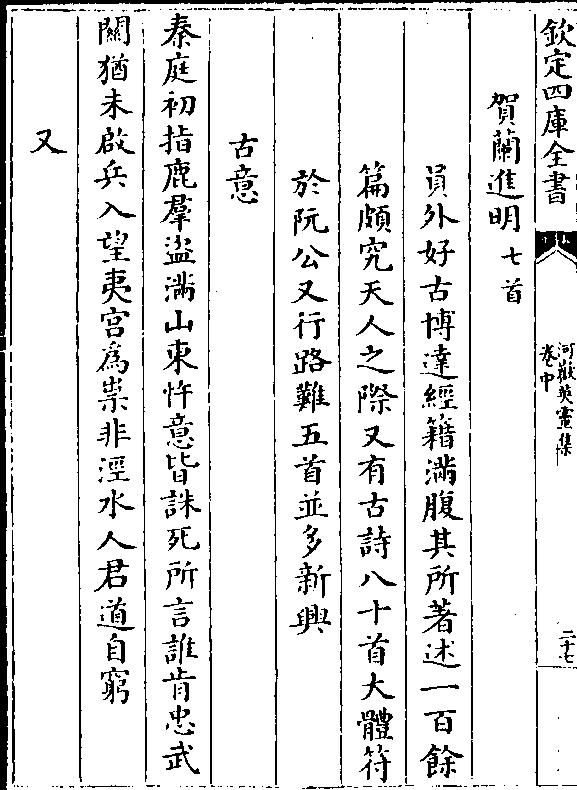 欽定四庫全書
河嶽英靈集
卷中
二十七
賀蘭進明七首
員外好古博達經籍滿腹其所著述一百餘
篇頗究天人之際又有古詩八十首大體符
於阮公又行路難五首並多新興
古意
秦庭初指鹿羣盜滿山東忤意皆誅死所言誰肯忠武
關猶未啟兵入望夷宮為祟非涇水人君道自窮
又